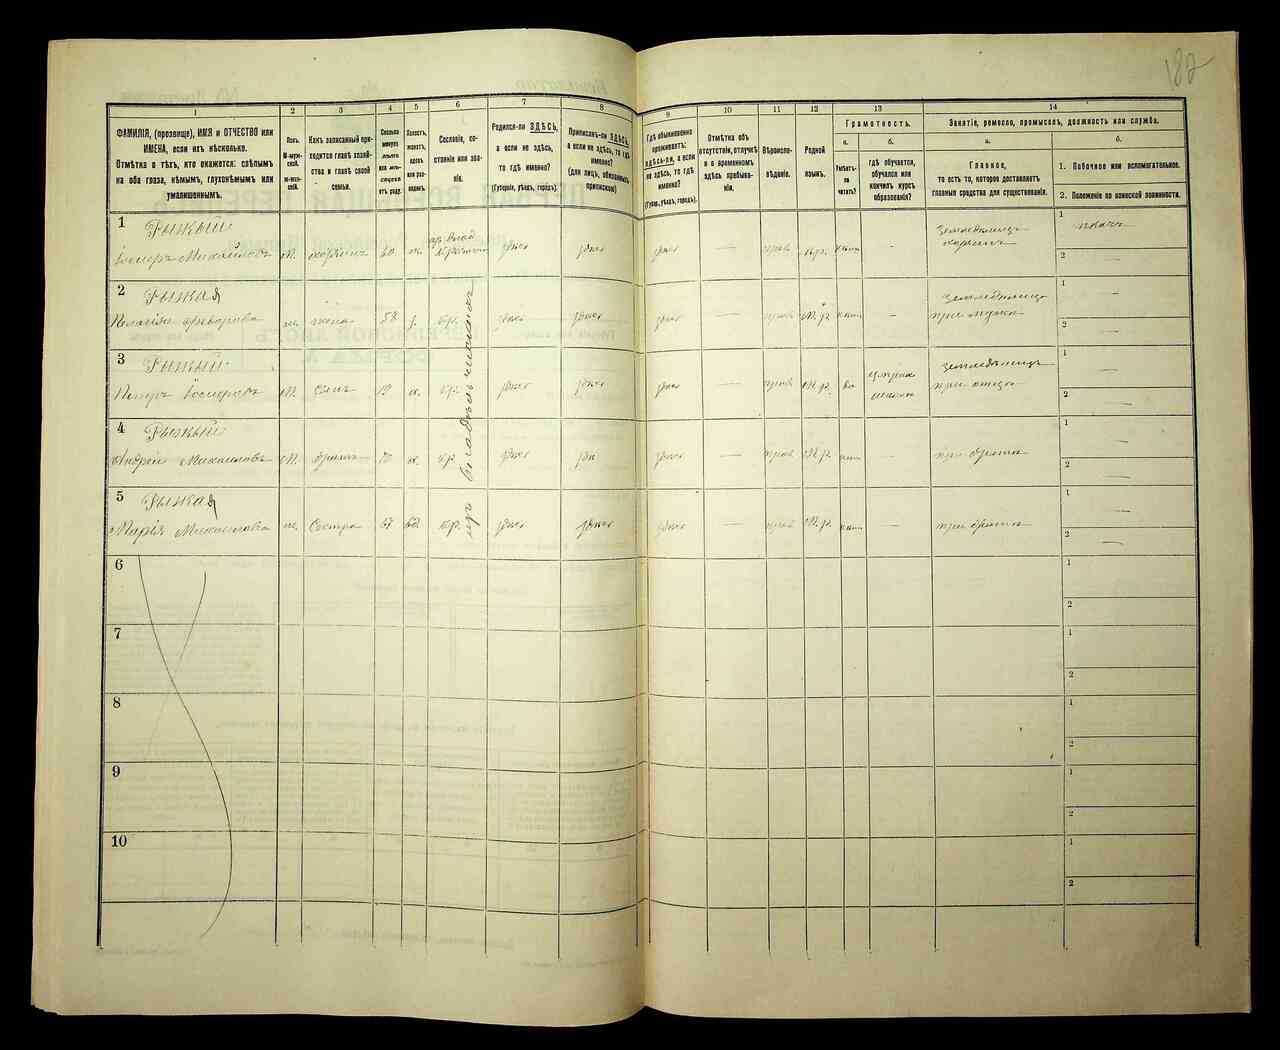 182
1
2
3
4
5
6
7
8
9
10
11
12
13
14
ФАМИЛІЯ, (прозвище), ИМЯ и ОТЧЕСТВО или
ИМЕНА, если ихъ нѣсколько.
Отмѣтка о тѣхъ, кто окажется: слѣпымъ
на оба глаза, нѣмымъ, глухонѣмымъ или
умалишеннымъ.
Полъ.
М-муж-
ской.
Ж-жен-
скій.
Какъ записанный при-
ходится главѣ хозяй-
ства и главѣ своей
семьи.
Сколько
минуло
лѣтъ
или мѣ-
сяцевъ
отъ роду.
Холостъ,
женатъ,
вдовъ
или раз-
веденъ.
Сословіе, со-
стояніе или зва-
ніе.
Родился-ли ЗДѢСЬ,
а если не здѣсь,
то гдѣ именно?
(Губернія, уѣздъ, городъ).
Приписанъ-ли ЗДѢСЬ,
а если не здѣсь, то гдѣ
именно?
(для лицъ, обязанныхъ
припискою)
Гдѣ обыкновенно
проживаетъ:
здѣсь-ли, а если
не здѣсь, то гдѣ
именно?
(Губер., уѣздъ, городъ).
Отмѣтка объ
отсутствіи, отлучкѣ
и о временномъ
здѣсь пребыва-
ніи.
Вѣроиспо-
вѣданіе.
Родной
языкъ.
Грамотность.
а.
Умѣетъ-
ли
читать?
б.
гдѣ обучается,
обучался или
кончилъ курсъ
образованія?
Занятіе, ремесло, промыселъ, должность или служба.
а.
Главное,
то есть то, которое доставляетъ
главныя средства для существованія.
б.
1. Побочное или вспомогательное.
2. Положеніе по воинской повинности.
1 Рыжый
Іосифъ Михайловъ М. хозяинъ 60 ж. здѣсь здѣсь здѣсь — прав — земледѣлецъ
хозяинъ
1
2 —
2 Рыжая
Пелагія ж. жена 58 кр. здѣсь здѣсь здѣсь — прав М. р. — земледѣлецъ
при мужѣ
1 —
2 —
3 Рыжый
Петръ Іосифовъ М. сынъ 19 х. кр. здѣсь здѣсь здѣсь — прав М. р. земледѣлецъ
при отцѣ
1 —
2 —
4 Рыжый
Андрей Михаиловъ М. братъ х. кр. здѣсь здѣсь — прав М. р. — при братѣ
1 —
2 —
5 Рыжая
Марія Михаиловна ж. Сестра кр. здѣсь здѣсь здѣсь — прав М. р. — при братѣ
1 —
2 —
6
1
2
7
1
2
8
1
2
9
1
2
10
1
2